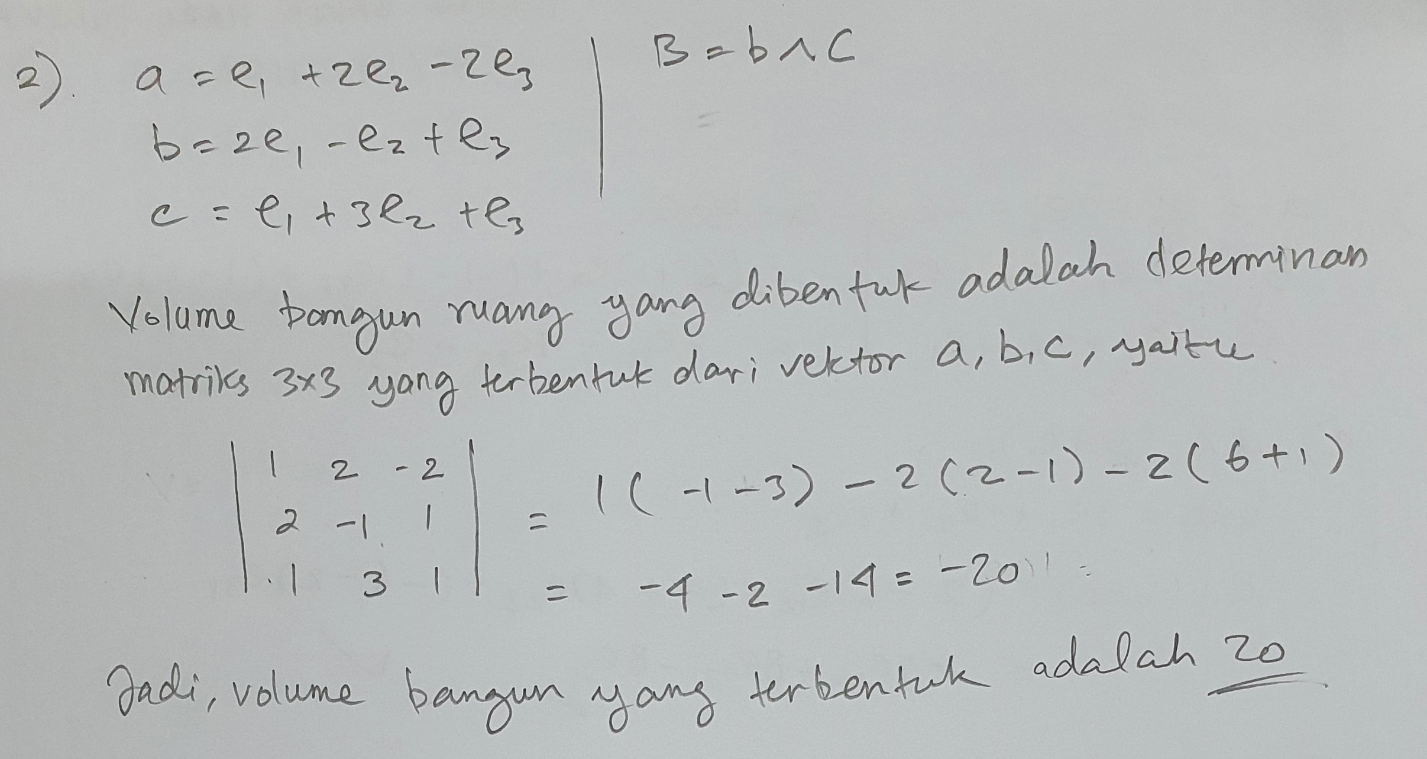 2). a = e₁ + 2e₂ - 2e₃ | B = b ∧ c
b = 2e₁ - e₂ + e₃ | =
c = e₁ + 3e₂ + e₃
Volume bangun ruang yang dibentuk adalah determinan
matriks 3x3 yang terbentuk dari vektor a, b, c, yaitu
| 1 2 -2 |
| 2 -1 1 | = 1(-1-3) - 2(2-1) - 2(6+1)
| 1 3 1 | = -4 - 2 - 14 = -20
Jadi, volume bangun yang terbentuk adalah 20